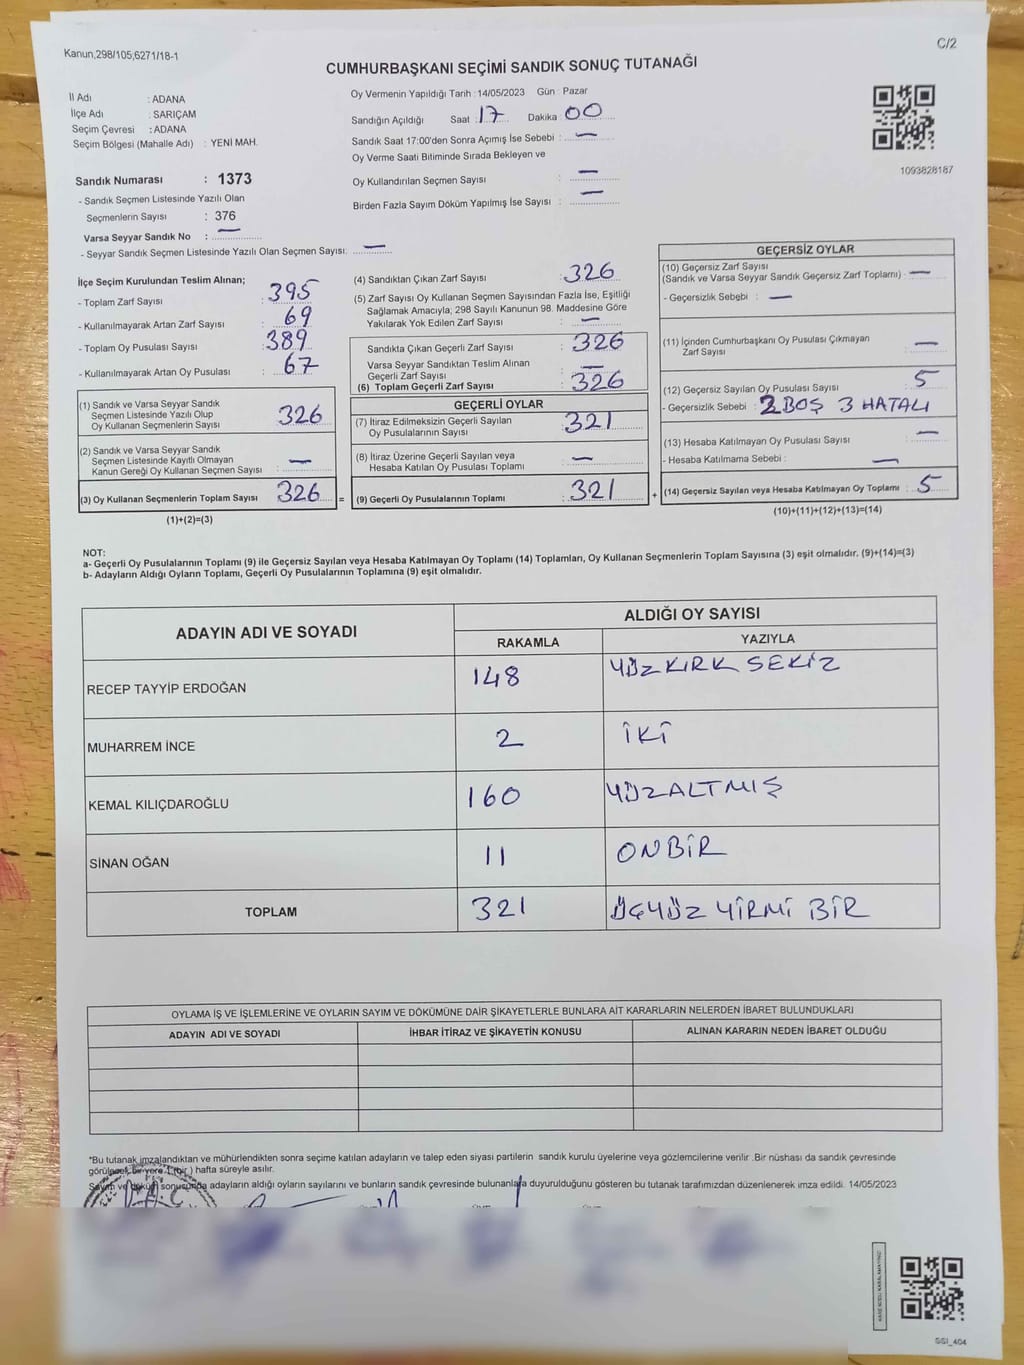 Kanun,298/105,6271/18-1
C/2
CUMHURBAŞKANI SEÇİMİ SANDIK SONUÇ TUTANAĞI
İl Adı : ADANA
İlçe Adı : SARIÇAM
Seçim Çevresi : ADANA
Seçim Bölgesi (Mahalle Adı) : YENİ MAH.
Sandık Numarası : 1373
- Sandık Seçmen Listesinde Yazılı Olan
Seçmenlerin Sayısı : 376
Varsa Seyyar Sandık No : —
- Seyyar Sandık Seçmen Listesinde Yazılı Olan Seçmen Sayısı: —
Oy Vermenin Yapıldığı Tarih : 14/05/2023 Gün : Pazar
Sandığın Açıldığı Saat : 17 Dakika : 00
Sandık Saat 17:00'den Sonra Açımış İse Sebebi : —
Oy Verme Saati Bitiminde Sırada Bekleyen ve
Oy Kullandırılan Seçmen Sayısı : —
Birden Fazla Sayım Döküm Yapılmış İse Sayısı : —
1093828187
İlçe Seçim Kurulundan Teslim Alınan;
- Toplam Zarf Sayısı : 395
- Kullanılmayarak Artan Zarf Sayısı : 69
- Toplam Oy Pusulası Sayısı : 389
- Kullanılmayarak Artan Oy Pusulası : 67
(1) Sandık ve Varsa Seyyar Sandık
Seçmen Listesinde Yazılı Olup
Oy Kullanan Seçmenlerin Sayısı : 326
(2) Sandık ve Varsa Seyyar Sandık
Seçmen Listesinde Kayıtlı Olmayan
Kanun Gereği Oy Kullanan Seçmen Sayısı : —
(3) Oy Kullanan Seçmenlerin Toplam Sayısı : 326 =
(1)+(2)=(3)
(4) Sandıktan Çıkan Zarf Sayısı : 326
(5) Zarf Sayısı Oy Kullanan Seçmen Sayısından Fazla İse, Eşitliği
Sağlamak Amacıyla; 298 Sayılı Kanunun 98. Maddesine Göre
Yakılarak Yok Edilen Zarf Sayısı : —
Sandıkta Çıkan Geçerli Zarf Sayısı : 326
Varsa Seyyar Sandıktan Teslim Alınan
Geçerli Zarf Sayısı : —
(6) Toplam Geçerli Zarf Sayısı : 326
GEÇERLİ OYLAR
(7) İtiraz Edilmeksizin Geçerli Sayılan
Oy Pusulalarının Sayısı : 321
(8) İtiraz Üzerine Geçerli Sayılan veya
Hesaba Katılan Oy Pusulası Toplamı : —
(9) Geçerli Oy Pusulalarının Toplamı : 321 +
GEÇERSİZ OYLAR
(10) Geçersiz Zarf Sayısı
(Sandık ve Varsa Seyyar Sandık Geçersiz Zarf Toplamı) : —
- Geçersizlik Sebebi : —
(11) İçinden Cumhurbaşkanı Oy Pusulası Çıkmayan
Zarf Sayısı : —
(12) Geçersiz Sayılan Oy Pusulası Sayısı : 5
- Geçersizlik Sebebi : 2 BOŞ 3 HATALI
(13) Hesaba Katılmayan Oy Pusulası Sayısı : —
- Hesaba Katılmama Sebebi : —
(14) Geçersiz Sayılan veya Hesaba Katılmayan Oy Toplamı : 5
(10)+(11)+(12)+(13)=(14)
NOT:
a- Geçerli Oy Pusulalarının Toplamı (9) ile Geçersiz Sayılan veya Hesaba Katılmayan Oy Toplamı (14) Toplamları, Oy Kullanan Seçmenlerin Toplam Sayısına (3) eşit olmalıdır. (9)+(14)=(3)
b- Adayların Aldığı Oyların Toplamı, Geçerli Oy Pusulalarının Toplamına (9) eşit olmalıdır.
ADAYIN ADI VE SOYADI ALDIĞI OY SAYISI
RAKAMLA YAZIYLA
RECEP TAYYİP ERDOĞAN 148 YÜZKIRK SEKİZ
MUHARREM İNCE 2 İKİ
KEMAL KILIÇDAROĞLU 160 YÜZALTMIŞ
SİNAN OĞAN 11 ONBİR
TOPLAM 321 ÜÇYÜZ YİRMİ BİR
OYLAMA İŞ VE İŞLEMLERİNE VE OYLARIN SAYIM VE DÖKÜMÜNE DAİR ŞİKAYETLERLE BUNLARA AİT KARARLARIN NELERDEN İBARET BULUNDUKLARI
ADAYIN ADI VE SOYADI İHBAR İTİRAZ VE ŞİKAYETİN KONUSU ALINAN KARARIN NEDEN İBARET OLDUĞU
*Bu tutanak imzalandıktan ve mühürlendikten sonra seçime katılan adayların ve talep eden siyasi partilerin sandık kurulu üyelerine veya gözlemcilerine verilir .Bir nüshası da sandık çevresinde
görülecek bir yere 1 (bir ) hafta süreyle asılır.
Sayım ve döküm sonucunda adayların aldığı oyların sayılarını ve bunların sandık çevresinde bulunanlara duyurulduğunu gösteren bu tutanak tarafımızdan düzenlenerek imza edildi. 14/05/2023
T.C.
SSI_404